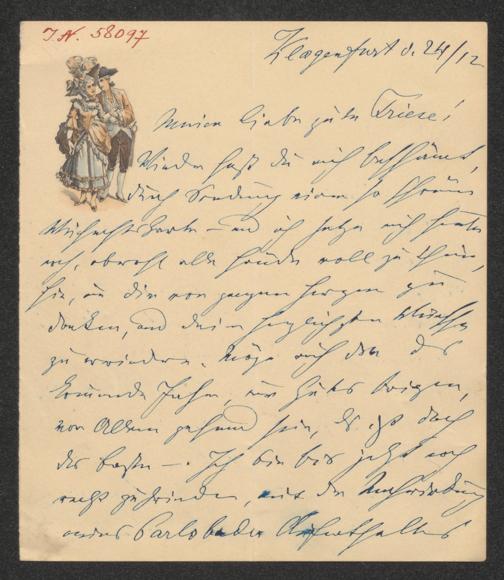 J.N. 58097
Klagenfurt d. 24/12
Meine liebe gute Friese!
Wieder hast du mich beschämt,
durch Sendung einer so schönen
Weihnachtskarte – und ich setze mich heute
noch, obwohl alle Hände voll zu thun,
hin, um dir von ganzem Herzen zu
danken, und deine herzlichsten Wünsche
zu erwiedern. Möge auch dir das
kommende Jahr, nur Gutes bringen,
vor Allem gesund sein, das ist doch
das beste –. Ich bin bis jetzt noch
recht zufrieden, mit der Nachwirkung
meines Carlsbader Aufenthaltes